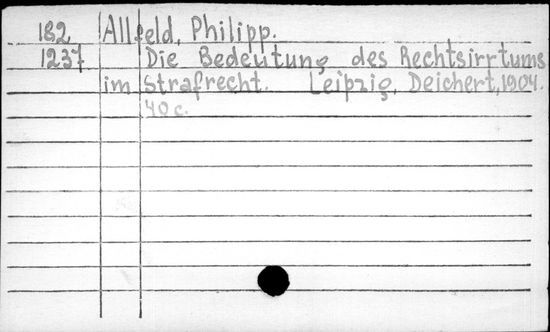 182 Allfeld, Philipp.
1237 Die Bedeutung des Rechtsirrtums
im Strafrecht. Leipzig, Deichert, 1904.
40 c.